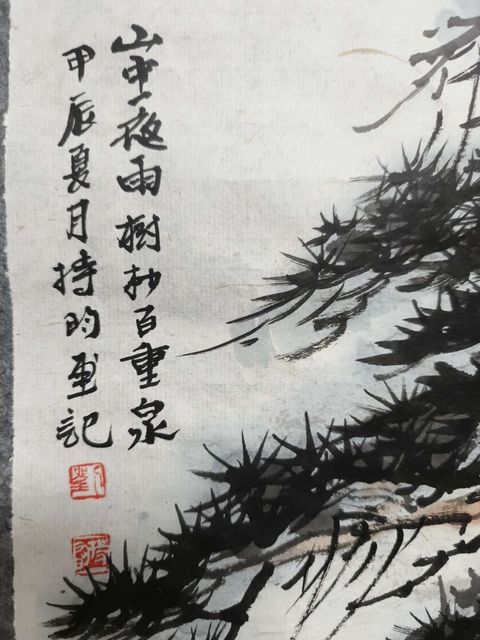 山中一夜雨樹杪百重泉
甲辰夏月持昀画記